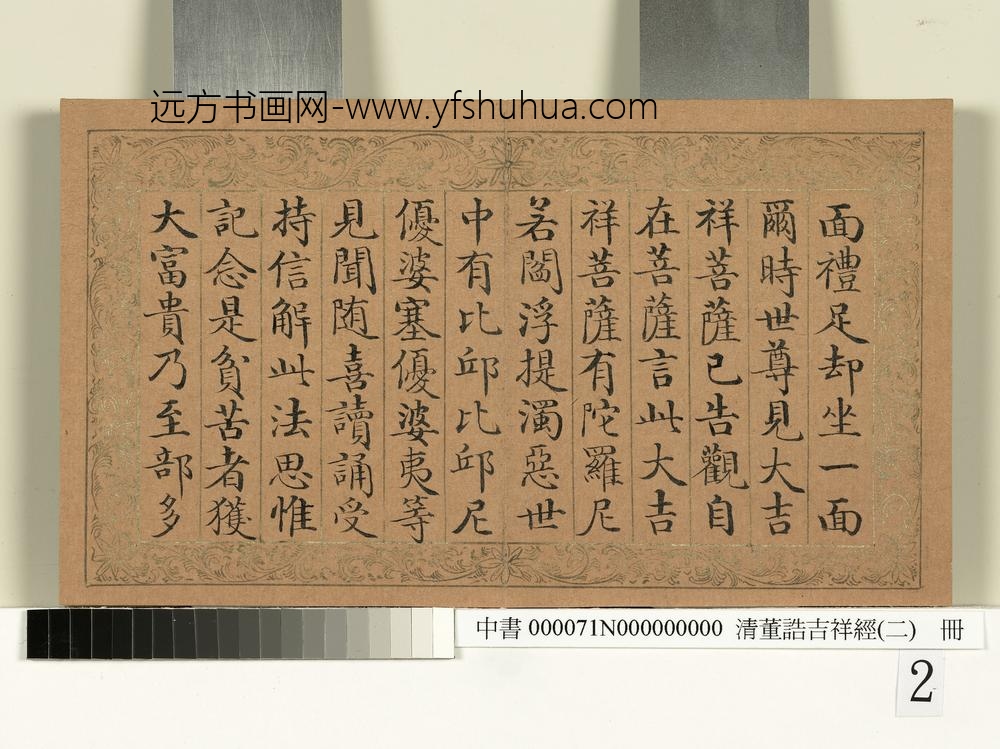 远方书画网-www.yfshuhua.com
面禮足却坐一面
爾時世尊見大吉
祥菩薩已告觀自
在菩薩言此大吉
祥菩薩有陀羅尼
若閻浮提濁惡世
中有比邱比邱尼
優婆塞優婆夷等
見聞随喜讀誦受
持信解此法思惟
記念是貧苦者獲
大富貴乃至部多
中書 000071N000000000 清董誥吉祥經(二) 冊
2